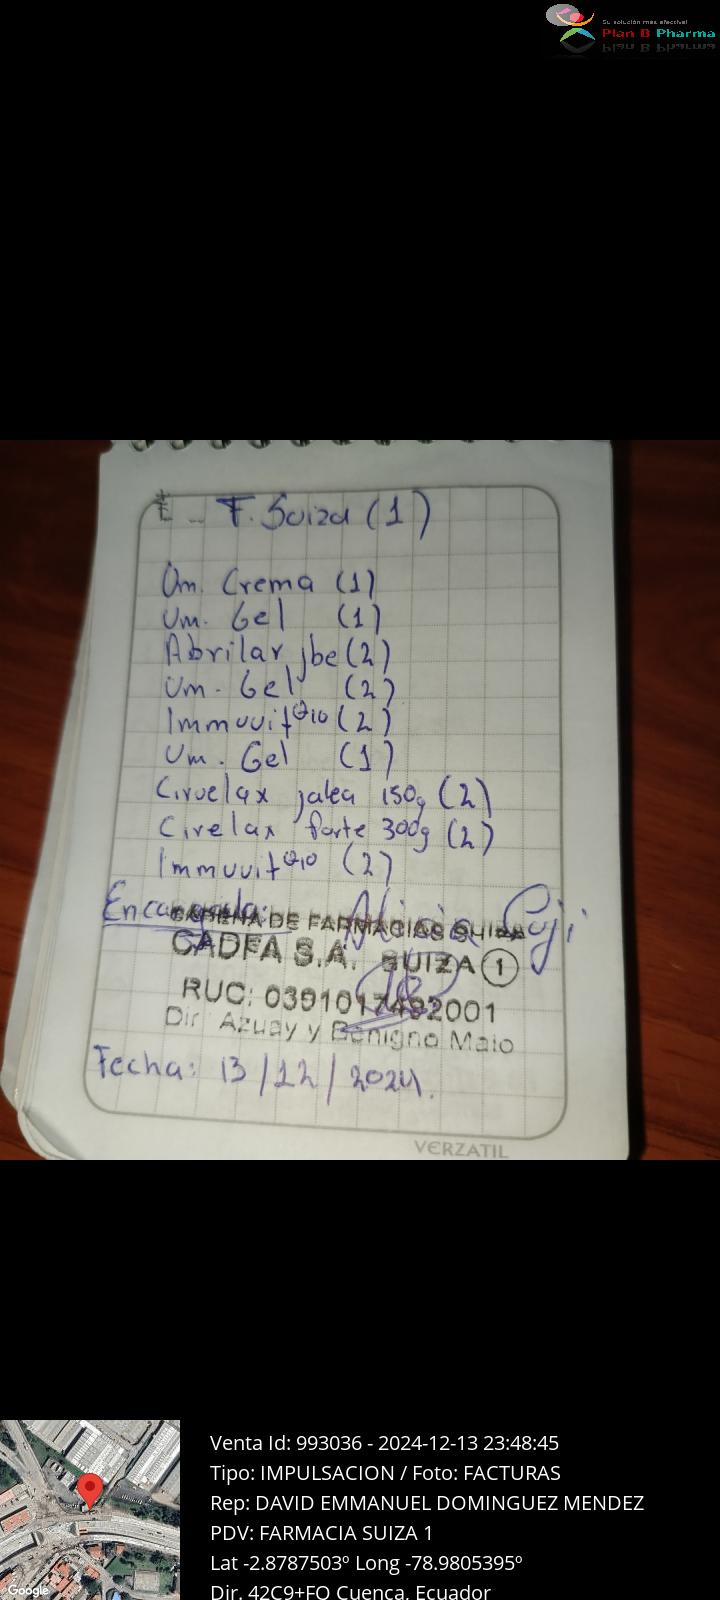 Su solución más efectiva!
Plan B Pharma
F. Suiza (1)
Um. Crema (1)
Um. Gel (1)
Abrilar jbe (2)
Um. Gel (2)
Immuvit Q10 (2)
Um. Gel (1)
Ciruelax jalea 150g (2)
Cirelax forte 300g (2)
Immuvit Q10 (2)
Encargada:
CADENA DE FARMACIAS SUIZA
CADFA S.A. SUIZA 1
RUC: 0391017492001
Dir: Azuay y Benigno Malo
Fecha: 13/12/2024.
VERZATIL
Venta Id: 993036 - 2024-12-13 23:48:45
Tipo: IMPULSACION / Foto: FACTURAS
Rep: DAVID EMMANUEL DOMINGUEZ MENDEZ
PDV: FARMACIA SUIZA 1
Lat -2.8787503º Long -78.9805395º
Dir. 42C9+FQ Cuenca, Ecuador
Google